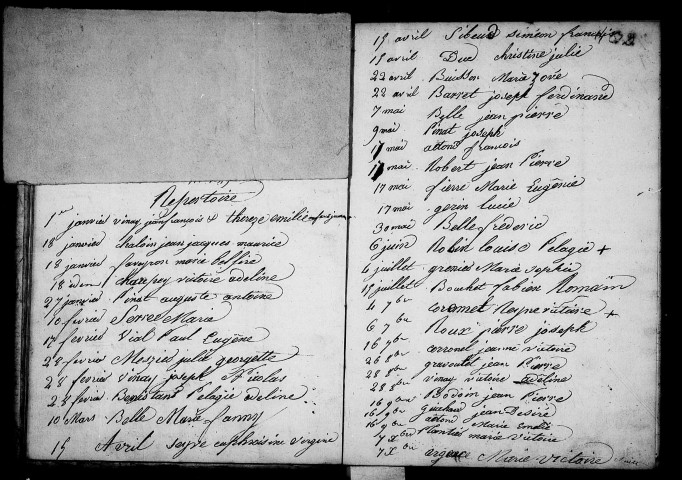 Repertoire
1er janvier vinay jean françois & therese emilie
18 janvier chalvin jean jacques maurice
18 janvier faveyron marie
18 idem charpey victoire adeline
27 janvier Pinat auguste antoine
10 fevrier Serre Marie
17 fevrier Vial Paul Eugène
28 fevrier Meyzies julie georgette
28 fevrier vinay joseph Nicolas
28 fevrier Benistant Pelagie adeline
10 Mars Belle Marie fanny
15 Avril seyve euphrosine virginie
15 avril Sibeud siméon françois
15 avril Duc christine julie
22 avril Buisson Marie
22 avril Barret joseph ferdinand
7 mai Belle jean pierre
9 mai Pinat joseph
17 mai attond françois
17 mai Robert jean Pierre
17 mai fierre Marie Eugénie
17 mai gerin lucie
30 mai Belle frederic
6 juin Robin louise Pelagie +
6 juillet gronier Marie sophie
15 juillet Bouchet fabien Romain
4 7bre coromet victoire
6 7bre Roux pierre joseph +
16 7bre corronel jeanne victoire
26 8bre gravoulet jean Pierre
28 8bre vinay victoire adeline
16 9bre Bodoin jean Pierre
16 9bre jean Desiré
16 9bre attond Marie
7 Xbre Plantier marie victoire
7 Xbre Marie victoire